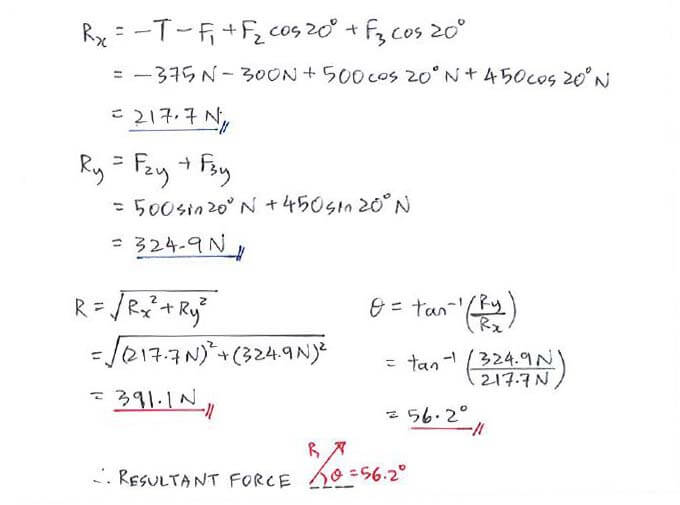 Rx = -T - F1 + F2 cos 20° + F3 cos 20°
= -375N - 300N + 500cos 20°N + 450cos 20°N
= 217.7 N
Ry = F2y + F3y
= 500sin20° N + 450sin 20° N
= 324.9 N
R = √(Rx² + Ry²)
= √((217.7N)² + (324.9N)²)
= 391.1 N
θ = tan⁻¹(Ry/Rx)
= tan⁻¹(324.9N/217.7N)
= 56.2°
∴ RESULTANT FORCE R θ = 56.2°